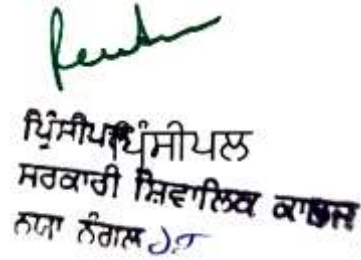 ਪ੍ਰਿੰਸੀਪਲ
ਸਰਕਾਰੀ ਸ਼ਿਵਾਲਿਕ ਕਾਲਜ
ਨਯਾ ਨੰਗਲ